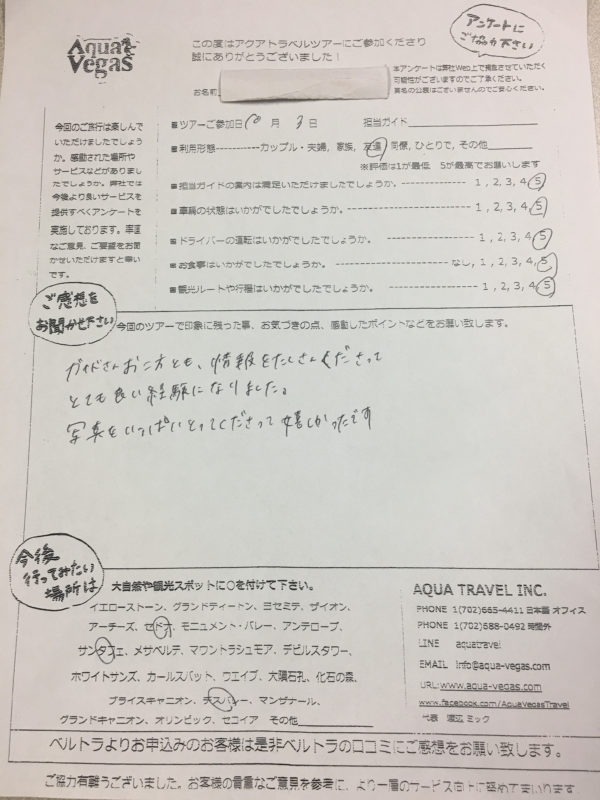 Aqua Vegas
この度はアクアトラベルツアーにご参加くださり
誠にありがとうございました！
アンケートに
ご協力下さい
本アンケートは弊社Web上で掲載させていただく
可能性がございますのでご了承ください。
実名の公表はございませんのでご安心ください。
お名前
今回のご旅行は楽しんで
いただけましたでしょう
か。感動された場所や
サービスなどがありまし
たでしょうか。弊社では
今後より良いサービスを
提供すべくアンケートを
実施しております。率直
なご意見、ご要望をお聞
かせいただけますと幸い
です。
■ツアーご参加日 10 月 3 日 担当ガイド
■利用形態-----------カップル・夫婦, 家族, 友達, 同僚, ひとりで, その他
※評価は1が最低 5が最高でお願いします
■担当ガイドの案内は満足いただけましたでしょうか。 ---------------- 1, 2, 3, 4, 5
■車輌の状態はいかがでしたでしょうか。 ---------------- 1, 2, 3, 4, 5
■ドライバーの運転はいかがでしたでしょうか。 ---------------- 1, 2, 3, 4, 5
■お食事はいかがでしたでしょうか。 ---------------- なし, 1, 2, 3, 4, 5
■観光ルートや行程はいかがでしたでしょうか。 ---------------- 1, 2, 3, 4, 5
ご感想を
お聞かせ下さい
今回のツアーで印象に残った事、お気づきの点、感動したポイントなどをお願い致します。
ガイドさんお二方とも、情報をたくさんくださって
とても良い経験になりました。
写真をいっぱいとってくださって嬉しかったです
今後
行ってみたい
場所は
大自然や観光スポットに○を付けて下さい。
イエローストーン、グランドティートン、ヨセミテ、ザイオン、
アーチーズ、セドナ、モニュメント・バレー、アンテロープ、
サンタフェ、メサベルデ、マウントラシュモア、デビルスタワー、
ホワイトサンズ、カールスバット、ウエイブ、大隕石孔、化石の森、
ブライスキャニオン、デスバレー、マンザナール、
グランドキャニオン、オリンピック、セコイア その他
AQUA TRAVEL INC.
PHONE 1(702)665-4411 日本語 オフィス
PHONE 1(702)688-0492 時間外
LINE aquatravel
EMAIL info@aqua-vegas.com
URL:www.aqua-vegas.com
www.facebook.com/AquaVegasTravel
代表 渡辺 ミック
ベルトラよりお申込みのお客様は是非ベルトラの口コミにご感想をお願い致します。
ご協力有難うございました。お客様の貴重なご意見を参考に、より一層のサービス向上に努めてまいります。